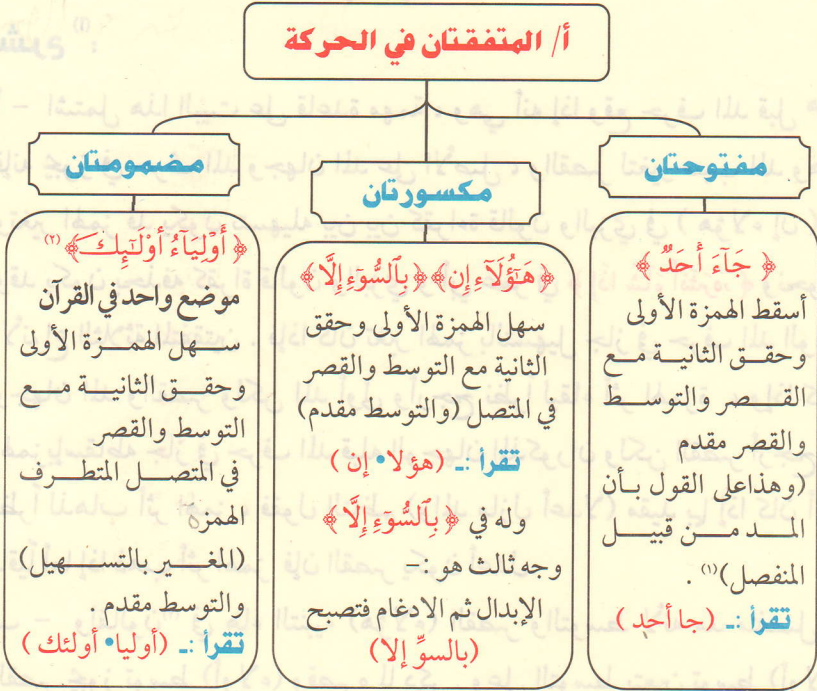 أ/ المتفقتان في الحركة
مفتوحتان
﴿ جَآءَ أَحَدٌ ﴾
أسقط الهمزة الأولى
وحقق الثانية مع
القصر والتوسط
والقصر مقدم
(وهذاعلى القول بأن
المد من قبيل
المنفصل)(١) .
تقرأ :ـ (جا أحد )
مكسورتان
﴿هَـٰٓؤُلَآءِ إِن﴾ ﴿بِٱلسُّوٓءِ إِلَّا﴾
سهل الهمزة الأولى وحقق
الثانية مع التوسط والقصر
في المتصل (والتوسط مقدم)
تقرأ :ـ (هؤلا• إن )
وله في ﴿بِٱلسُّوٓءِ إِلَّا﴾
وجه ثالث هو :-
الإبدال ثم الادغام فتصبح
(بالسوِّ إلا)
مضمومتان
﴿ أَوْلِيَآءُ أُوْلَـٰٓئِكَ﴾(٢)
موضع واحد في القرآن
سهل الهمزة الأولى
وحقق الثانية مع
التوسط والقصر
في المتصل المتطرف
الهمزه
(المغير بالتسهيل)
والتوسط مقدم .
تقرأ :ـ (أوليا• أولئك )